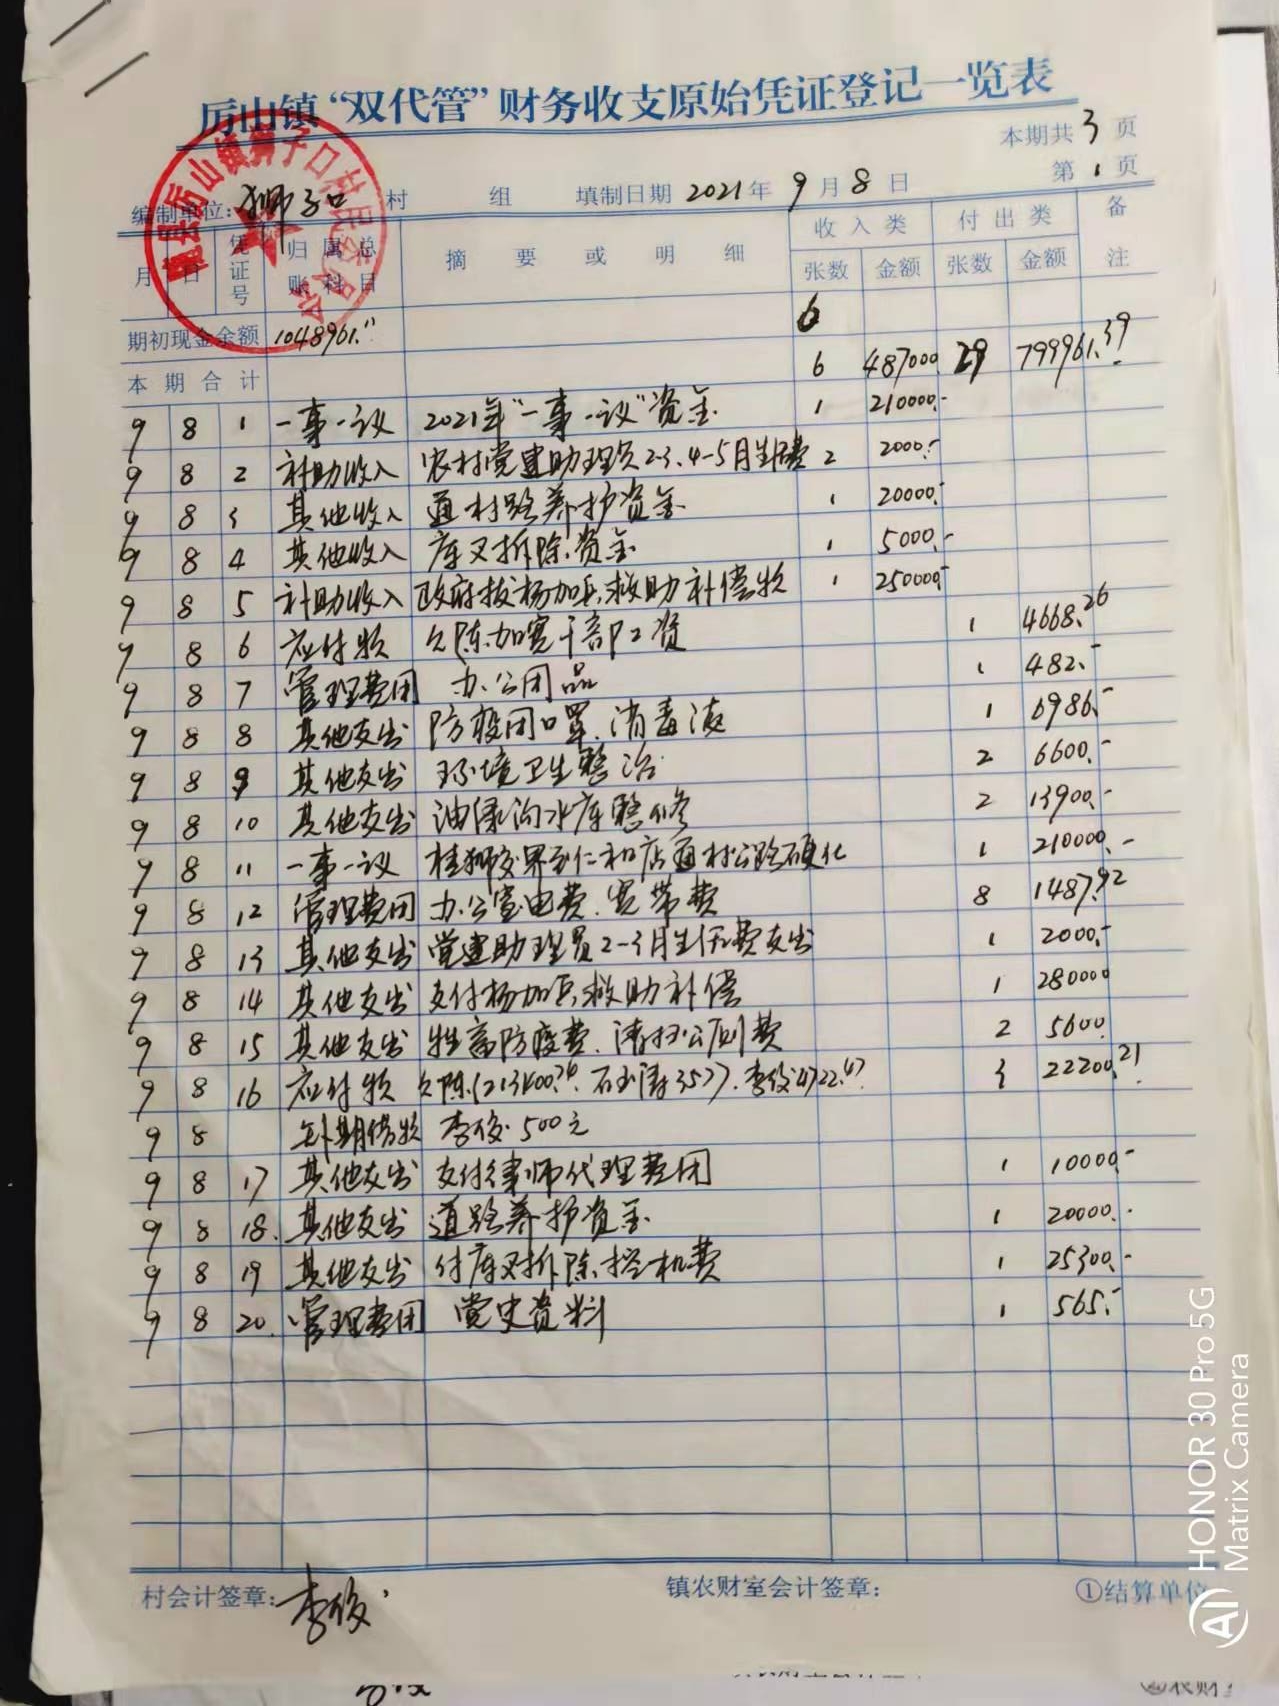 厉山镇“双代管”财务收支原始凭证登记一览表
本期共3页
第1页
编制单位: 狮子口 村 组 填制日期 2021年9月8日
月 日 凭证号 归属总账科目 摘要或明细 收入类 付出类 备注
张数 金额 张数 金额
期初现金余额 1048961.11 6
本期合计 6 487000 29 799961.39
9 8 1 一事一议 2021年“一事一议”资金 1 210000.-
9 8 2 补助收入 农村党建助理员2-3、4-5月生活费 2 2000.-
9 8 3 其他收入 通村路养护资金 1 20000.-
9 8 4 其他收入 库叉拆除资金 1 5000.-
9 8 5 补助收入 政府拨杨加兵救助补偿款 1 250000.-
9 8 6 应付款 欠陈加宽干部工资 1 4668.26
9 8 7 管理费用 办公用品 1 482.-
9 8 8 其他支出 防疫用口罩、消毒液 1 6986.-
9 8 9 其他支出 环境卫生整治 2 6600.-
9 8 10 其他支出 油 沟水库整修 2 13900.-
9 8 11 一事一议 桂狮交界到仁和店通村公路硬化 1 210000.-
9 8 12 管理费用 办公室电费、宽带费 8 1487.92
9 8 13 其他支出 党建助理员2-3月生活费支出 1 2000.-
9 8 14 其他支出 支付杨加兵救助补偿 1 280000
9 8 15 其他支出 牲畜防疫费、清扫公厕费 2 5600
9 8 16 应付款 欠陈 石玉涛3577.李俊4722.47 3 22200.21
9 8 短期借款 李俊500元
9 8 17 其他支出 支付律师代理费用 1 10000.-
9 8 18. 其他支出 道路养护资金 1 20000.-
9 8 19 其他支出 付库叉拆除挖机费 1 25300.-
9 8 20. 管理费用 党史资料 1 565.-
村会计签章: 李俊 镇农财室会计签章: ①结算单位
HONOR 30 Pro 5G
Matrix Camera
AI